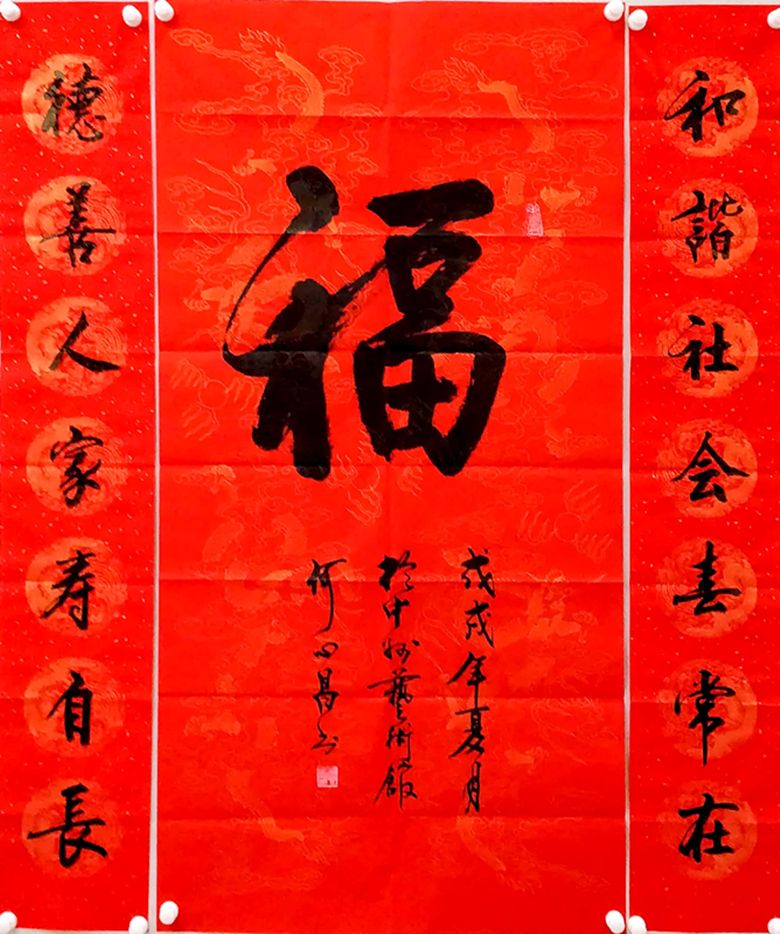 和諧社会春常在
福
戊戌年夏月
於中州藝術館
何四昌书
穗善人家寿自長